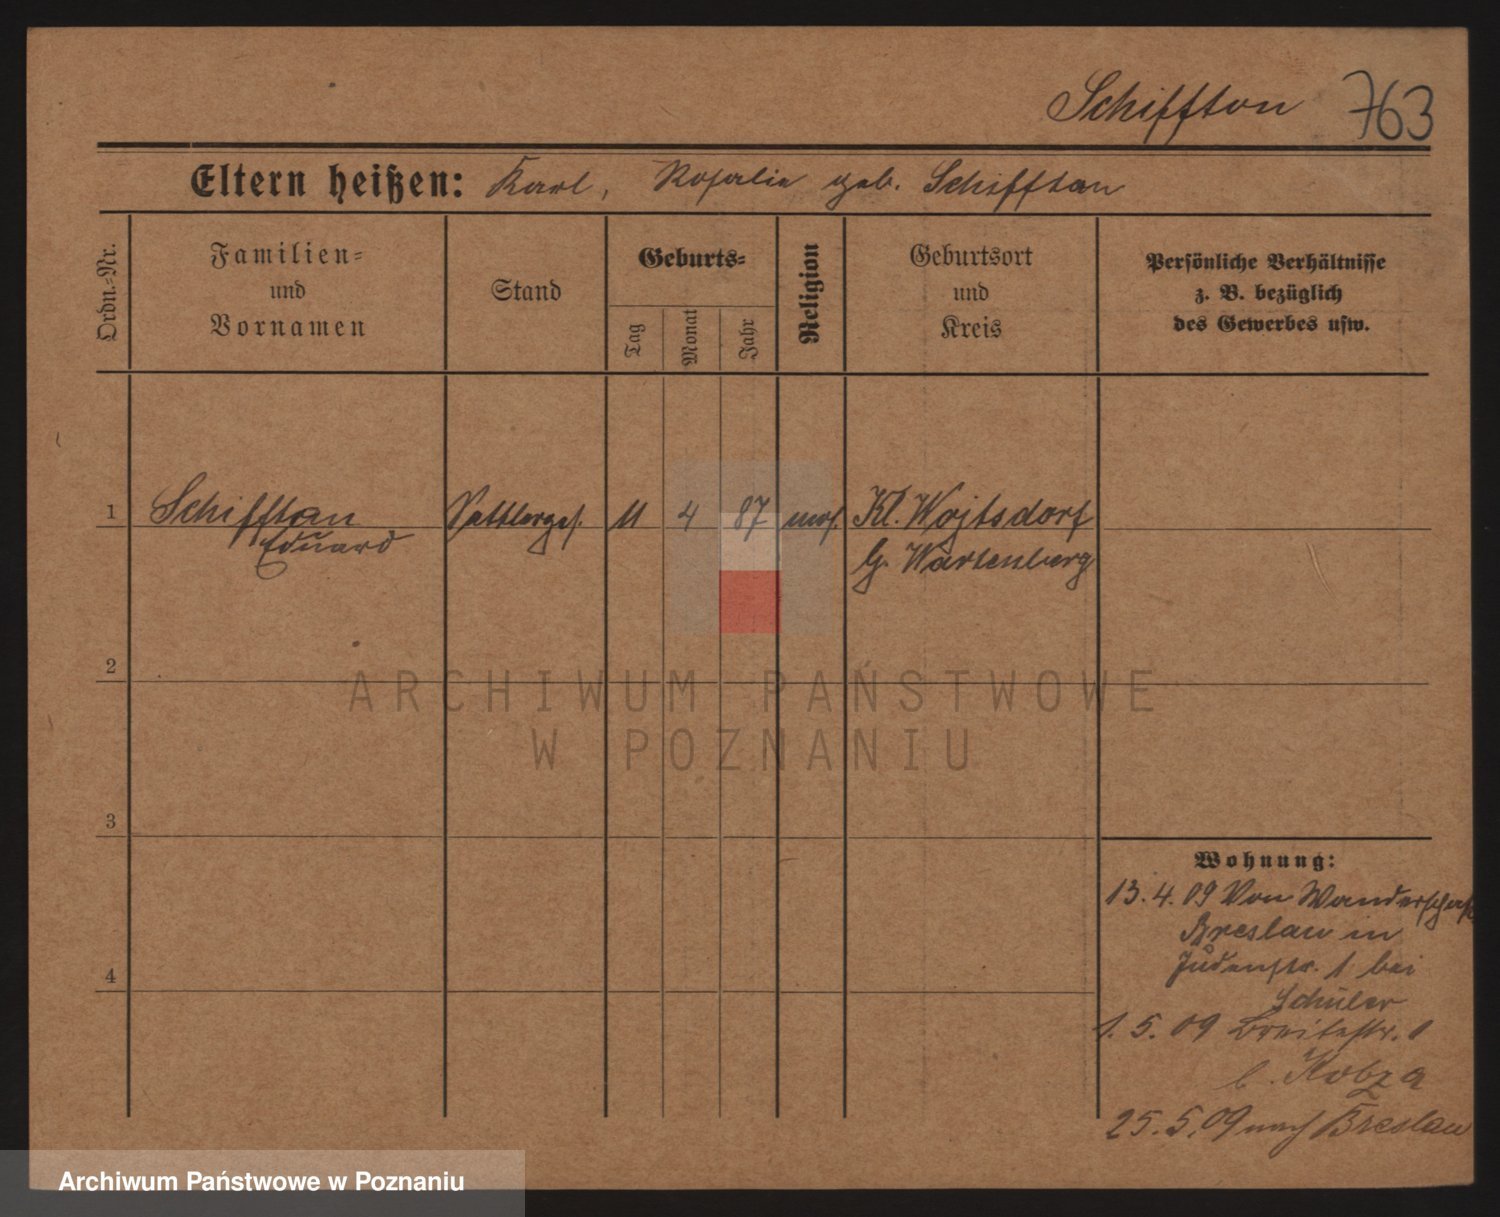 Schifftan 763
Eltern heißen: Karl, Rosalie geb. Schifftan
Ordn.-Nr.
Familien-
und
Vornamen
Stand
Geburts-
Tag
Monat
Jahr
Religion
Geburtsort
und
Kreis
Persönliche Verhältnisse
z. B. bezüglich
des Gewerbes usw.
1 Schifftan Sattlerges. 11 4 87 mos. Kl. Wojtsdorf
Eduard G. Wartenberg
2
3
4
Wohnung:
13. 4. 09 Von Wanderschaft
Breslau in
Judenstr. 1 bei
Schüler
1. 5. 09 Breitestr. 1
b. Kobza
25. 5. 09 nach Breslau
ARCHIWUM PAŃSTWOWE
W POZNANIU
Archiwum Państwowe w Poznaniu